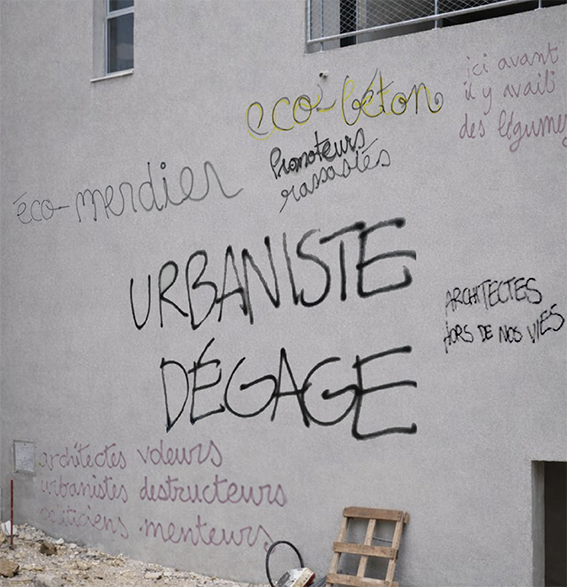 eco-béton
ici avant
il y avait
des légumes
Promoteurs
rassasiés
éco-merdier
URBANISTE
DÉGAGE
ARCHITECTES
HORS DE NOS VIES
architectes voleurs
urbanistes destructeurs
politiciens menteurs